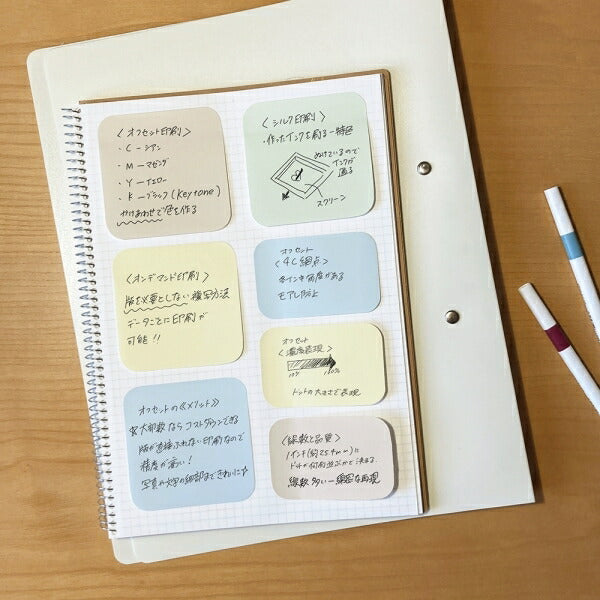 〈オフセット印刷〉
・C ー シアン
・M ー マゼンダ
・Y ー イエロー
・K ー ブラック(Keytone)
かけあわせで色を作る
〈オンデマンド印刷〉
版を必要としない複写方法
データごとに印刷が
可能!!
オフセットの《メリット》
☆大部数ならコストダウンできる
版が直接ふれない印刷なので
精度が高い!
写真や文字の細部まできれいに
〈シルク印刷〉
・作ったインクを刷る ー 特色
ぬけているので
インクが
通る
スクリーン
オフセット
〈4C網点〉
各インキ角度がある
モアレ防止
オフセット
〈濃度表現〉
10%
100%
ドットの大きさで表現
〈線数と品質〉
1インチ(約25.4mm)に
ドットが何列並ぶかで決まる。
線数多い ー 綿密な再現